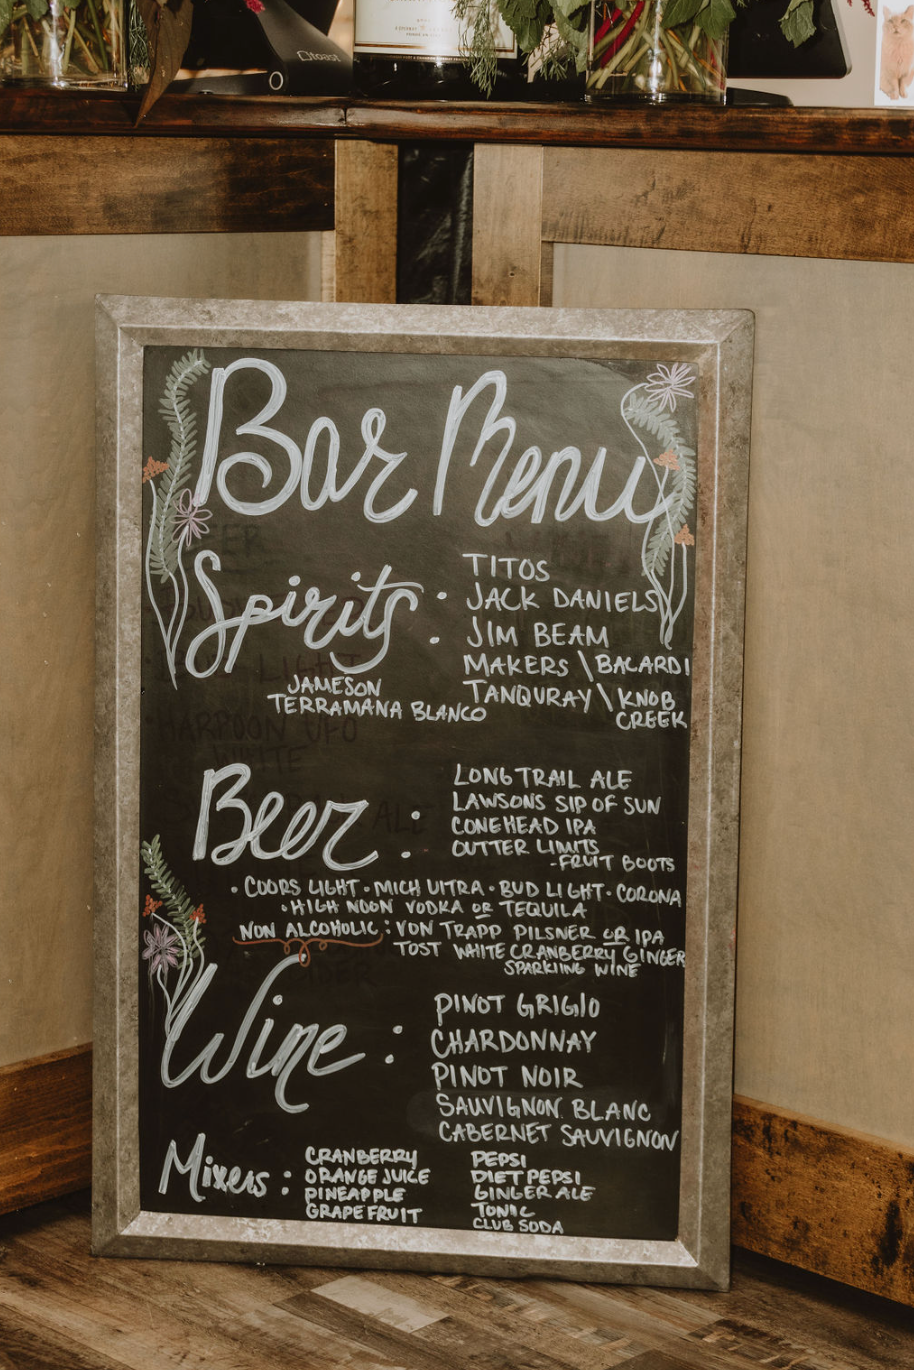 toast
Bar Menu
Spirits:
TITOS
JACK DANIELS
JIM BEAM
MAKERS \ BACARDI
TANQURAY \ KNOB
CREEK
JAMESON
TERRAMANA BLANCO
Beer:
LONG TRAIL ALE
LAWSONS SIP OF SUN
CONEHEAD IPA
OUTTER LIMITS
-FRUIT BOOTS
• COORS LIGHT • MICH ULTRA • BUD LIGHT • CORONA
• HIGH NOON VODKA OR TEQUILA
NON ALCOHOLIC: VON TRAPP PILSNER OR IPA
TOST WHITE CRANBERRY GINGER
SPARKLING WINE
Wine:
PINOT GRIGIO
CHARDONNAY
PINOT NOIR
SAUVIGNON BLANC
CABERNET SAUVIGNON
Mixers:
CRANBERRY
ORANGE JUICE
PINEAPPLE
GRAPEFRUIT
PEPSI
DIET PEPSI
GINGER ALE
TONIC
CLUB SODA